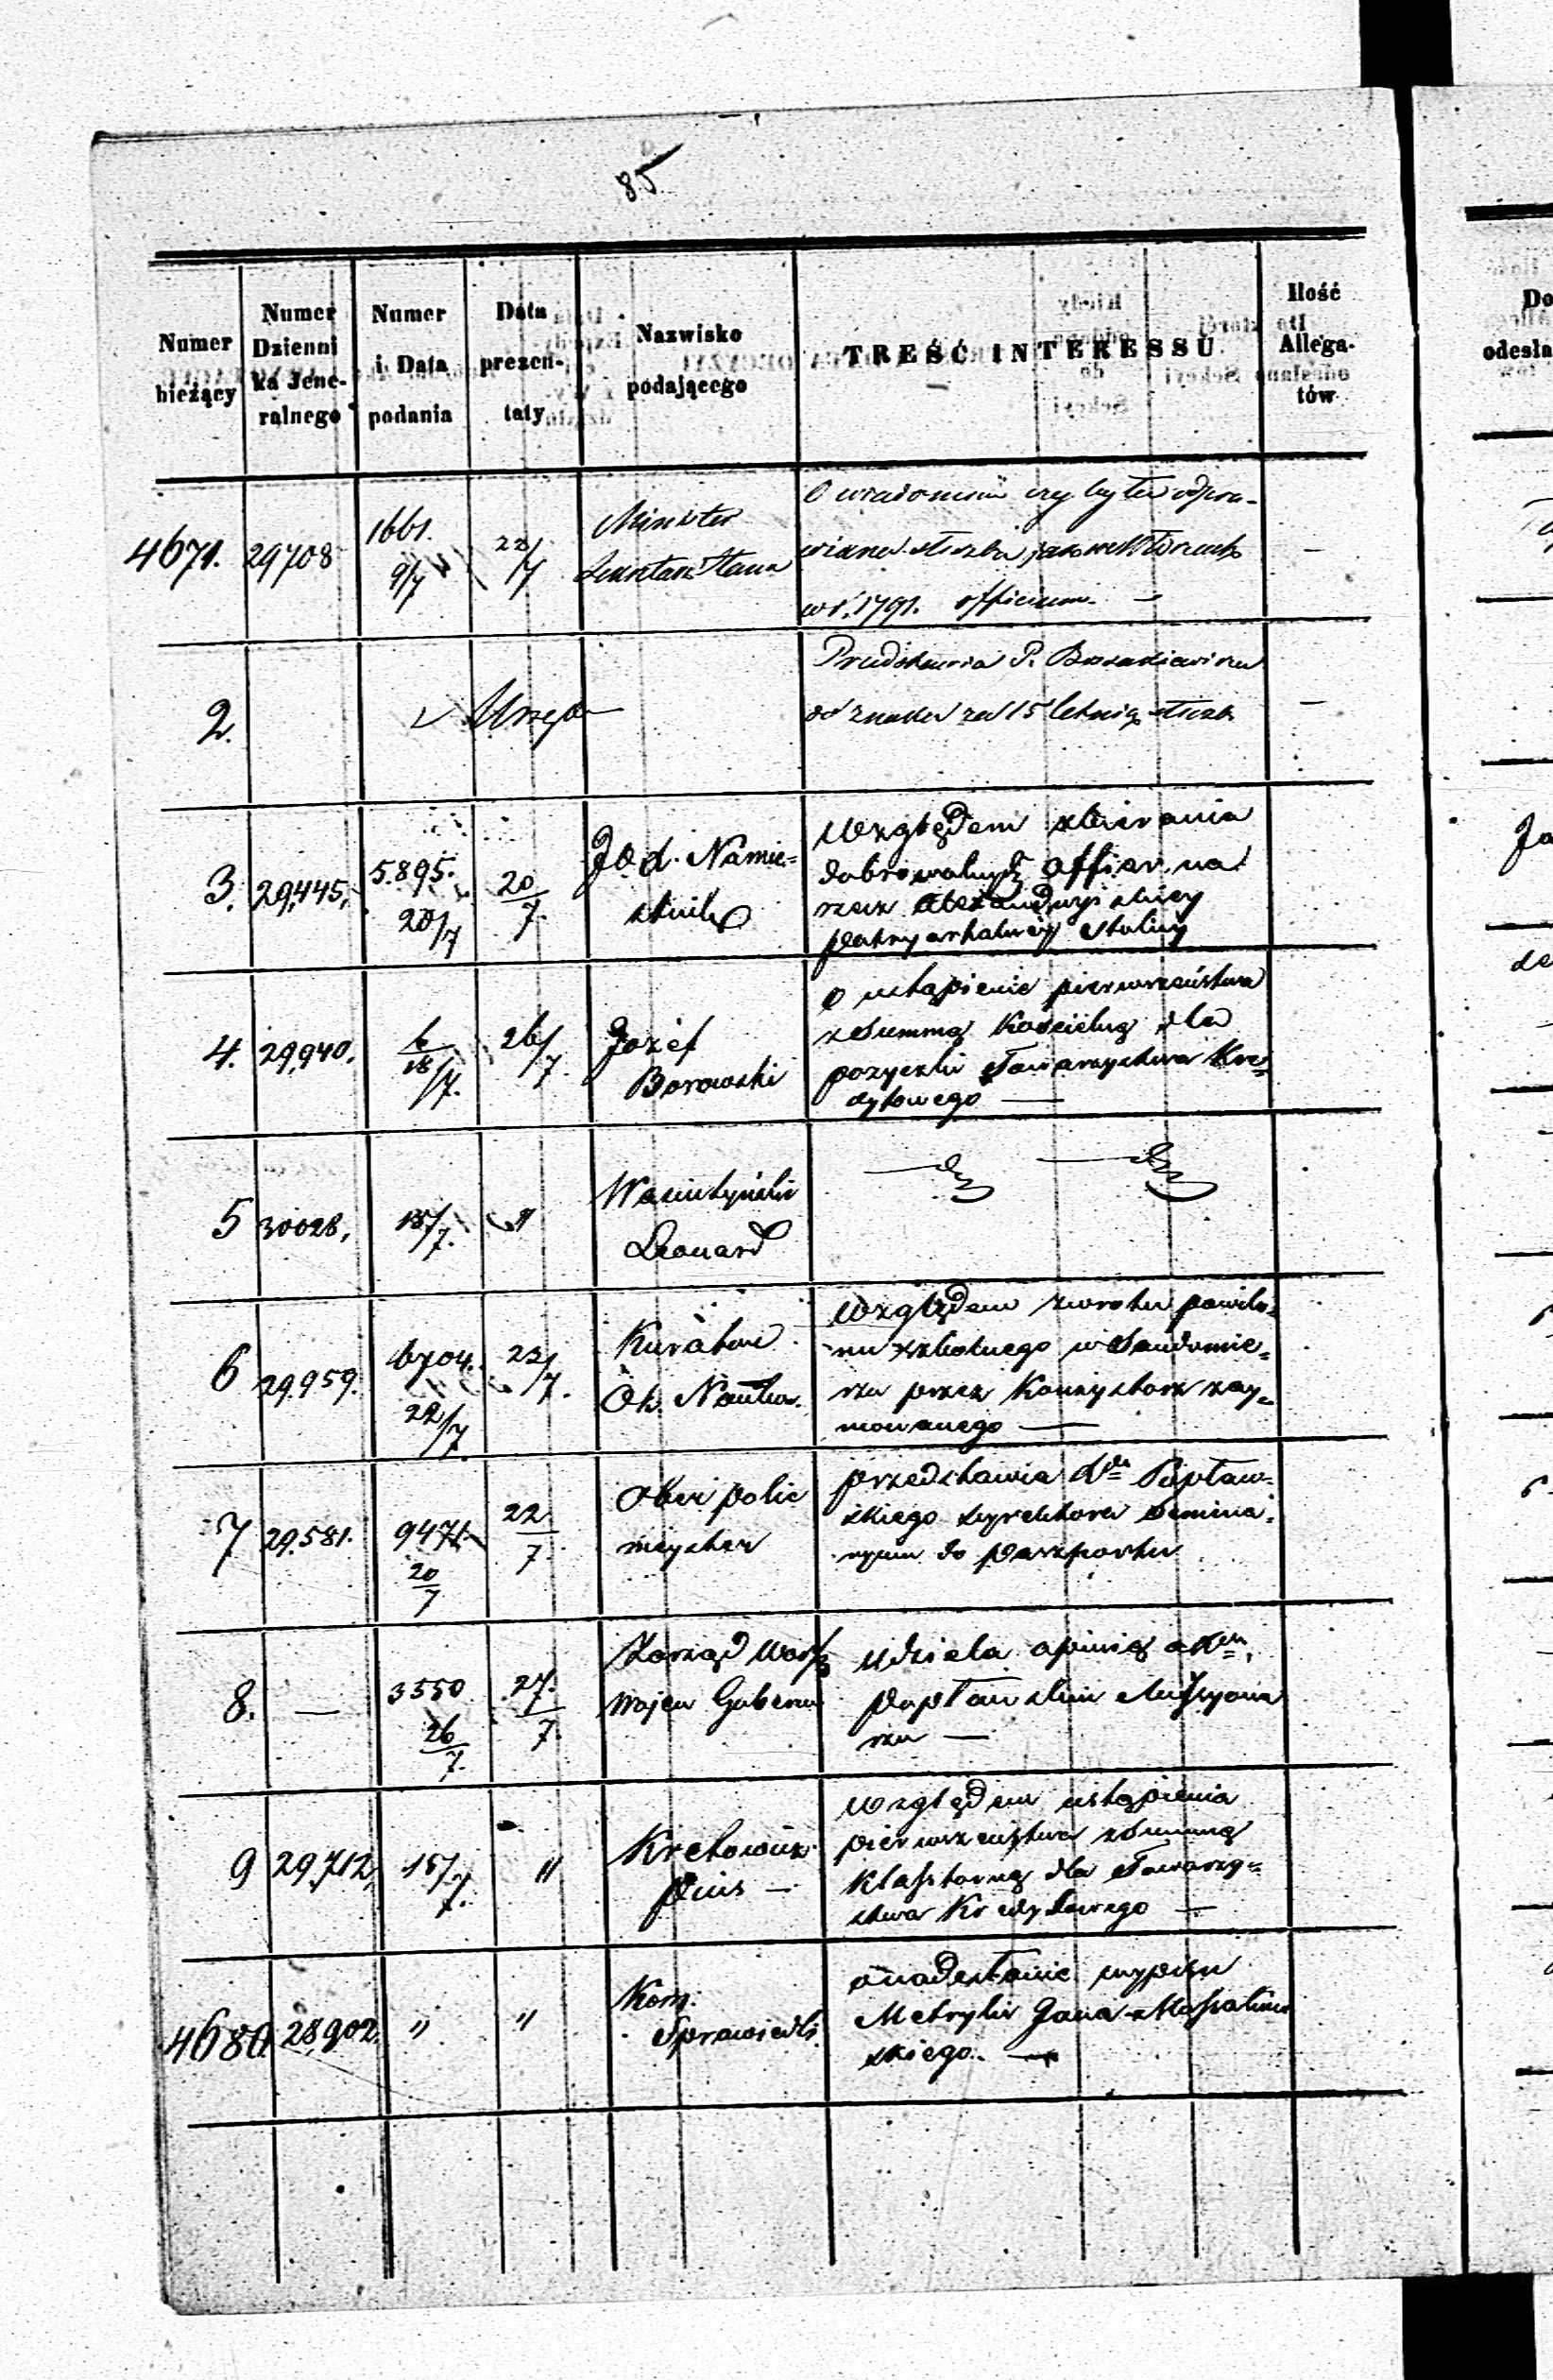 85
Numer bieżący
Numer Dzienni ka Jene- ralnego
Numer i Data podania
Data prezen- taty
Nazwisko podającego
TREŚĆ INTERESSU
Ilość Allega- tów
4671. 29708 1661. 9/7 22/7 Minister
Sekretarz Stanu
O wiadomość czy była odpra-
wiana służba
w r. 1791. officium. —
2. Urzęd
Przedstawia P.
od znaku za 15 letnią służb
3. 29,445, 5.895. 20/7 20/7. JO. X. Namie=
stnik
Względem zbierania
dobrowolnych offiar na
rzecz Alexandryiskiey
patryarhalnéy stolicy
4. 29,940. 18/7. 26/7. Jozéf
Borowski
O ustąpienie pierwszeństwa
z Summą Kościelną dla
pozyczki Towarzystwa Kre=
dytowego —
5 30028, 15/7. "
Wasiutyński
Leonard
dto dto
6 29,959. 6704. 22/7. 22/7. Kurator
Ok. Nauko.
Względem zwrotu pawilo=
nu szkolnego w Sandomie=
rzu przez Konsystorz zay=
mowanego —
7 29.581. 9471 20/7 22/7. Ober polic
meyster
przedstawia Xdza Popław-
skiego dyrektora Semina=
ryum do paszportu
8. — 3550 26/7. 27/7. Zarząd Wars
Wojen Guberna
Udziela opinią o Xdzu
Popławskim Missyona
rzu —
9 29,712, 15/7. " Kretowicz
Pius —
Względem ustąpienia
pierwszeństwa z Summą
Klasztorną dla Towarzy=
stwa Kredytowego —
4680. 28,902. " " Kom:
Sprawiedli.
o nadesłanie wypisu
Metryki Jana
skiego. —
Do
odesła